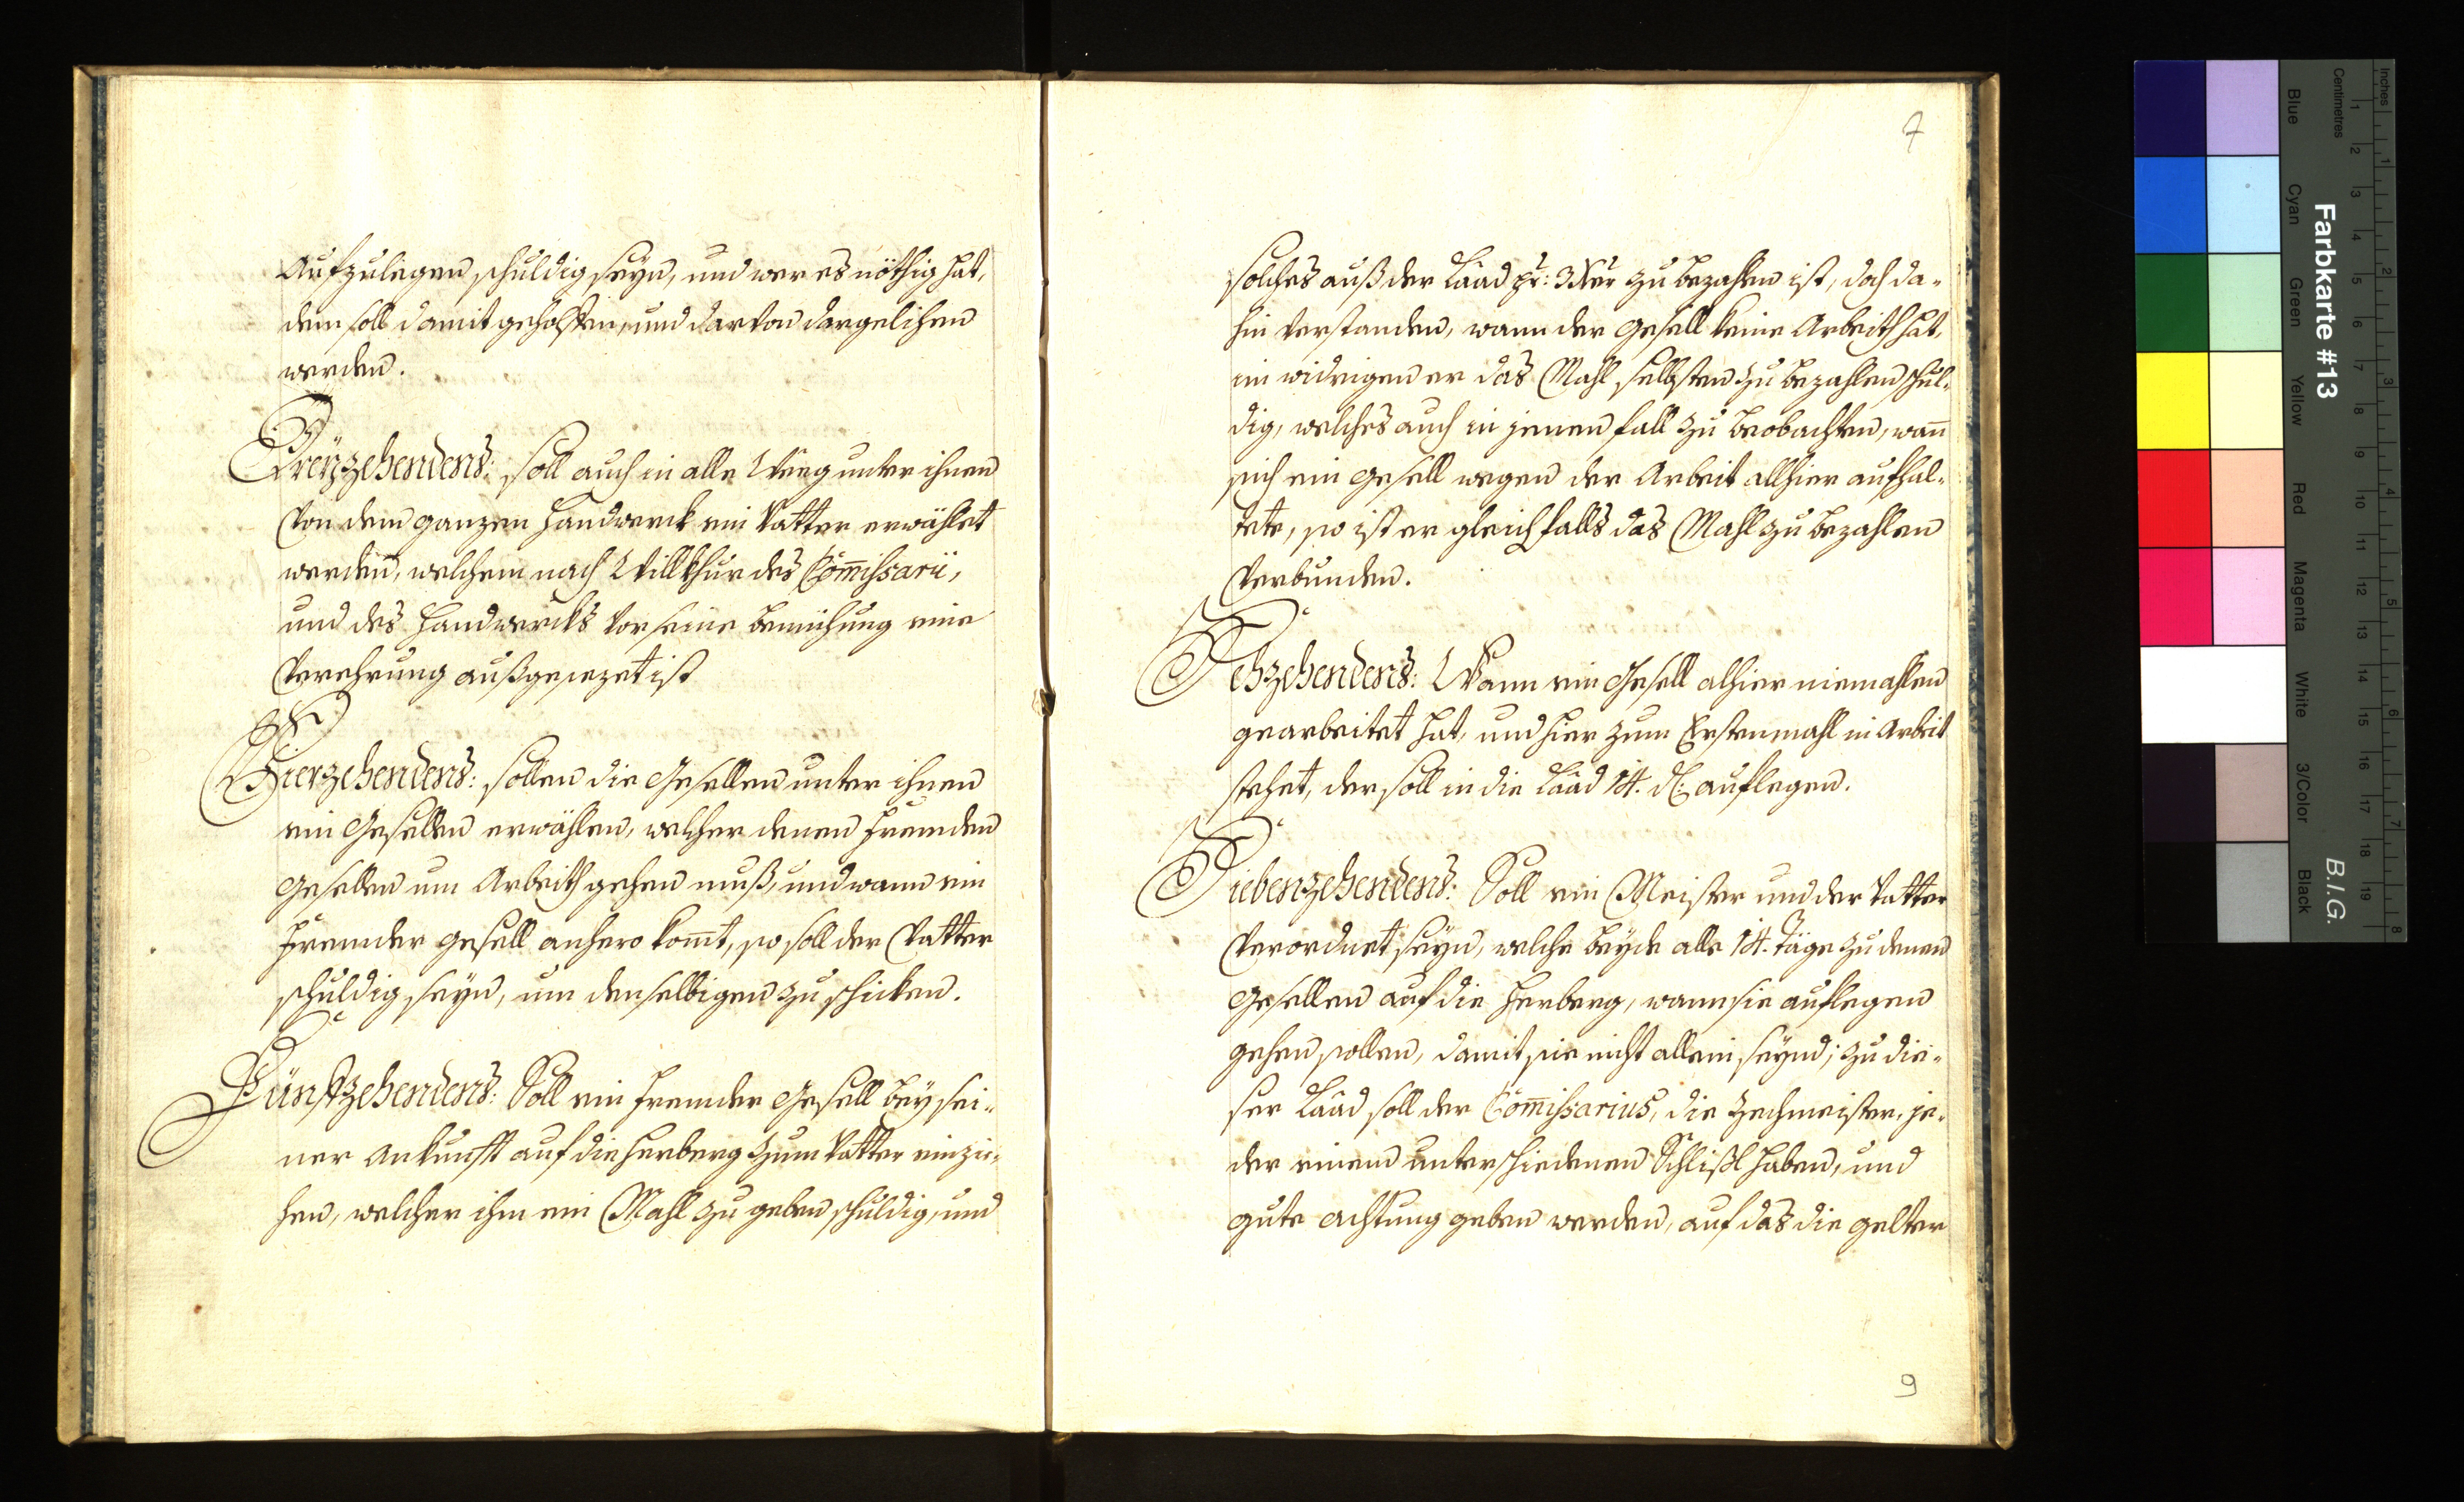 Aufzulegen schuldig seyn, und wer es nöthig hat,
dem soll damit geholffen, und darvon dargelihen
werden.
Dreÿzehendens: soll auch in alle Weeg unter ihnen
von dem ganzen Handwerck ein Vatter erwählet
werden, welchem nach Willkhur des Com̃issarii,
und des Handwercks vor seine bemühung eine
Verehrung außgesezet ist
Vierzehendens: sollen die Gesellen unter ihnen
ein Gesellen erwählen, welcher denen frembden
Gesellen um Arbeith gehen muß, und wann ein
frembder gesell anhero kom̃t, so soll der Vatter
schuldig seyn, um denselbigen zu schicken.
Fünffzehendens: Soll ein frembder Gesell beÿ sei-
ner Ankunfft auf die Herberg zum Vatter einzie-
hen, welcher ihm ein Mahl zu geben schuldig, und
7
solches auß der Laad pr: 3 Xer zu bezahlen ist, doch da-
hin verstanden, wann der gesell keine Arbeith hat,
im widrigen er das Mahl selbsten zu bezahlen schul-
dig, welches auch in jenen fall zu beobachten, wañ
sich ein gesell wegen der Arbeit allhier aufhal-
tete, so ist er gleichfalls das Mahl zu bezahlen
Verbunden.
Sechzehendens: Wann ein Gesell alhier niemahlen
gearbeitet hat, und hier zum Erstenmahl in Arbeit
stehet, der soll in die Laad 14. d: auflegen.
Siebenzehendens: Soll ein Meister und der Vatter
Verordnet seyn, welche beyde alle 14. Täge zu denen
gesellen auf die Herberg, wann sie auflegen
gehen sollen, damit sie nicht allein seynd; zu die-
ser Laad soll der Com̃issarius, die Zechmeister, je-
der einem unterschiedenen Schlißl haben, und
gute achtung geben werden, auf das die gelter
9
Farbkarte #13
B.I.G.
Inches
Centimetres
1 2 3 4 5 6 7 8 9 10 11 12 13 14 15 16 17 18 19
1 2 3 4 5 6 7 8
Blue
Cyan
Green
Yellow
Red
Magenta
White
3/Color
Black